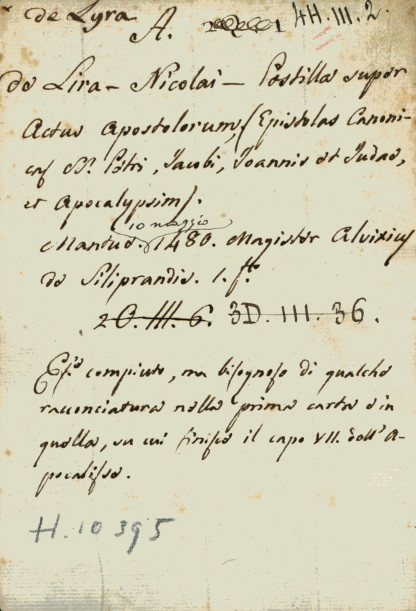 de Lyra
A.
4H.III.2.
de Lira – Nicolai – Postilla super
Actus Apostolorum, (Epistolas Canoni-
cas B. Petri, Jacobi, Joannis et Judae,
et Apocalypsim).
10 maggio
Mantuae. 1480. Magister Aluixius
de Siliprandis. 1. f.to
2O.III.6. 3D.III.36.
Es.o compiuto, ma bisognoso di qualche
racconciatura nella prima carta e in
quella, su cui finisce il capo VII. dell'A-
pocalisse.
H.10395